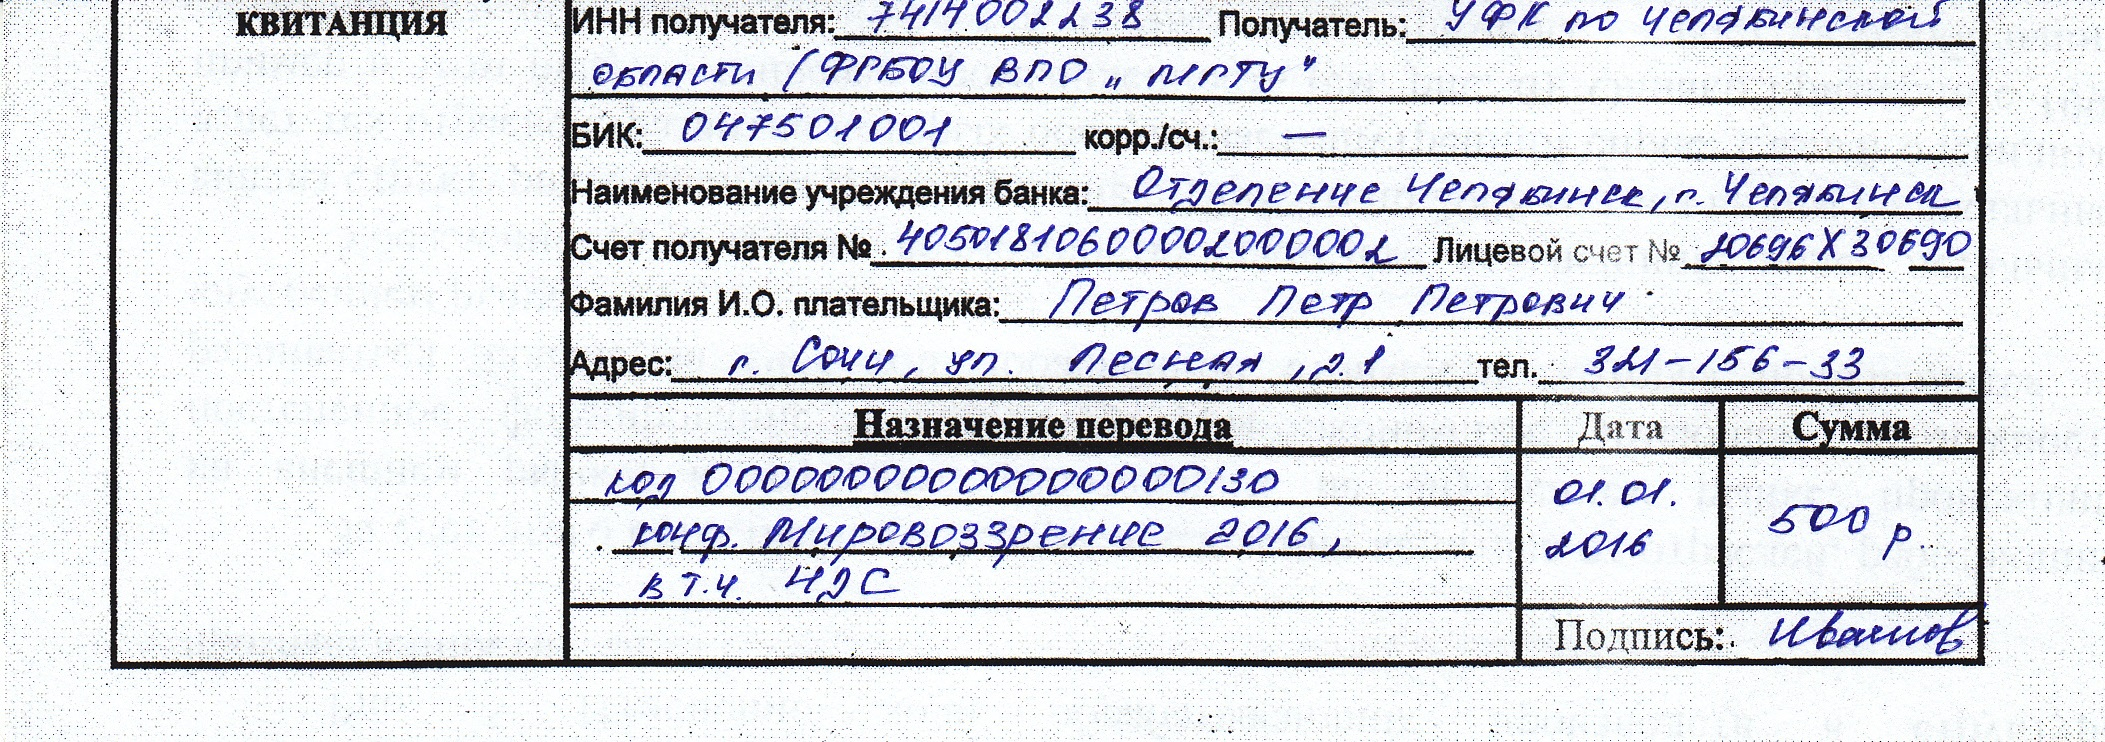 КВИТАНЦИЯ
ИНН получателя: 7414002238 Получатель: УФК по Челябинской
области (ФГБОУ ВПО „МГТУ"
БИК: 047501001 корр./сч.: —
Наименование учреждения банка: Отделение Челябинск, г. Челябинск
Счет получателя № 40501810600002000002 Лицевой счет № 20696X30690
Фамилия И.О. плательщика: Петров Петр Петрович
Адрес: г. Сочи, ул. Лесная, д. 1 тел. 321-156-33
Назначение перевода Дата Сумма
код 00000000000000000130
конф. Мировоззрение 2016,
в т.ч. НДС
01.01.
2016
500 р.
Подпись: Иванов